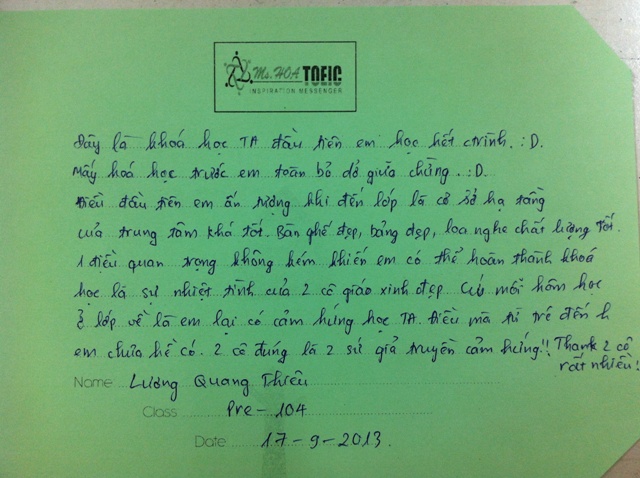 Ms. HOA TOEIC
INSPIRATION MESSENGER
Đây là khoá học TA đầu tiên em học hết ctrình. :D.
Mấy hoá học trước em toàn bỏ dở giữa chừng. :D.
Điều đầu tiên em ấn tượng khi đến lớp là cơ sở hạ tầng
của trung tâm khá tốt. Bàn ghế đẹp, bảng đẹp, loa nghe chất lượng tốt.
1 điều quan trọng không kém khiến em có thể hoàn thành khoá
học là sự nhiệt tình của 2 cô giáo xinh đẹp. Cứ mỗi hôm học
ở lớp về là em lại có cảm hứng học TA. Điều mà từ trc đến h
em chưa hề có. 2 cô đúng là 2 sứ giả truyền cảm hứng!! Thank 2 cô
rất nhiều!
Name Lương Quang Thiều
Class Pre - 104
Date 17 - 9 - 2013.